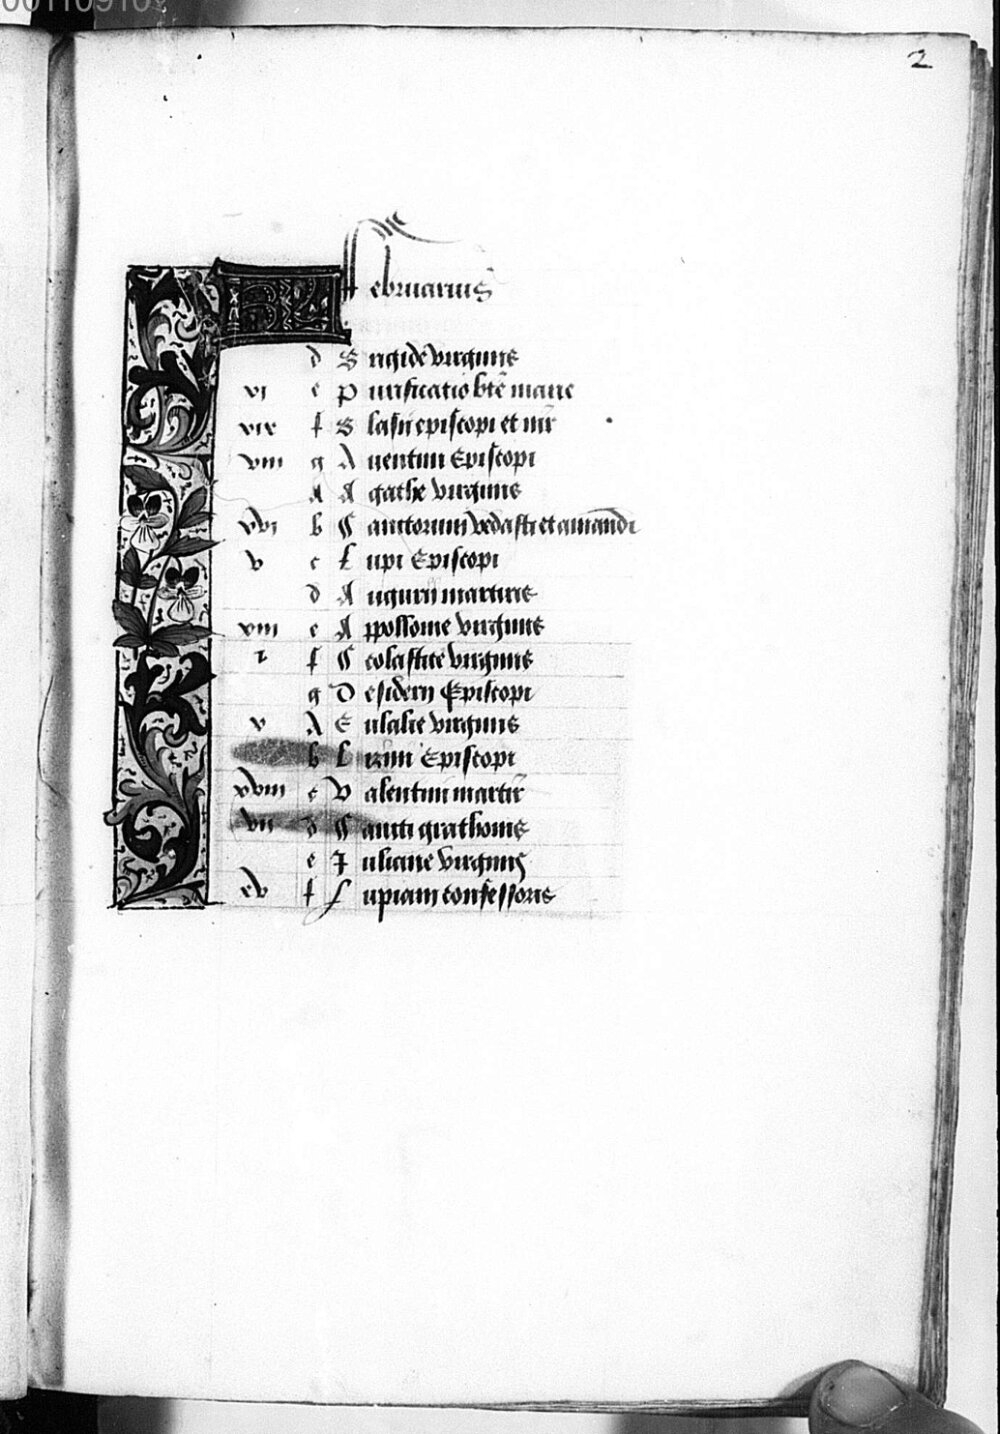 2
KL Februarius
d Brigide virginis
vi e Purificatio bte marie
xix f Blasii episcopi et mr
viii g Aventini Episcopi
A Agathe virginis
xvi b Sanctorum vedasti et amandi
v c Lupi Episcopi
d Augurii martiris
xiii e Appollonie virginis
f Scolastice virginis
g Desiderii Episcopi
A Eulalie virginis
b Episcopi
xviii c Valentini martir
vii d Sancti grathonis
e Juliane virginis
xv f confessoris